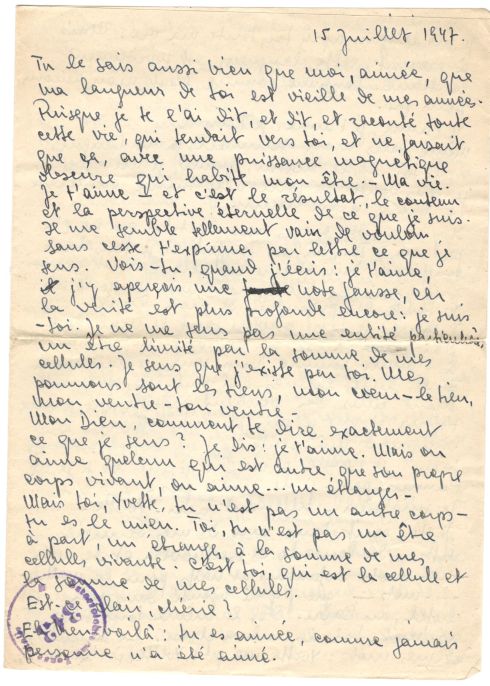 15 Juillet 1947.
Tu le sais aussi bien que moi, aimée, que
ma langueur de toi est vieille de mes années.
Puisque je te l'ai dit, et dit, et raconté toute
cette vie, qui tendait vers toi, et ne faisait
que ça, avec une puissance magnétique
obscure qui habite mon être. - Ma vie.
Je t'aime - et c'est le résultat, le contenu
et la perspective éternelle de ce que je suis.
Il me semble tellement vain de vouloir
sans cesse t'exprimer par lettre ce que je
sens. Vois-tu, quand j'écris : je t'aime,
j'y aperçois une note fausse, car
la vérité est plus profonde encore : je suis
-toi. Je ne me sens pas une entité particulière,
un être limité par la somme de mes
cellules. Je sens que j'existe par toi. Mes
poumons sont les tiens, mon coeur - le tien,
mon ventre - ton ventre -
Mon Dieu, comment te dire exactement
ce que je sens? Je dis : je t'aime. Mais on
aime quelcun qui est autre que son propre
corps vivant, on aime... un étranger -
Mais toi, Yvette, tu n'est pas un autre corps -
tu es le mien. Toi, tu n'est pas un être
à part, un étranger, à la somme de mes
cellules vivante. C'est toi, qui est la cellule et
la somme de mes cellules.
Est-ce clair, chérie?
Eh bien voilà : tu es aimée, comme jamais
personne n'a été aimé.